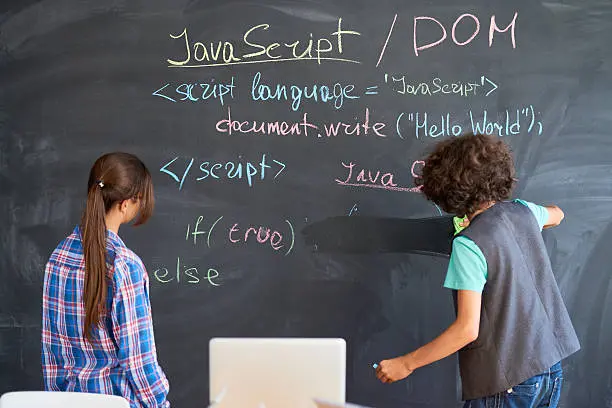 JavaScript / DOM
<script language = "JavaScript">
document.write ("Hello World");
</script>
Java S
if(true)
else